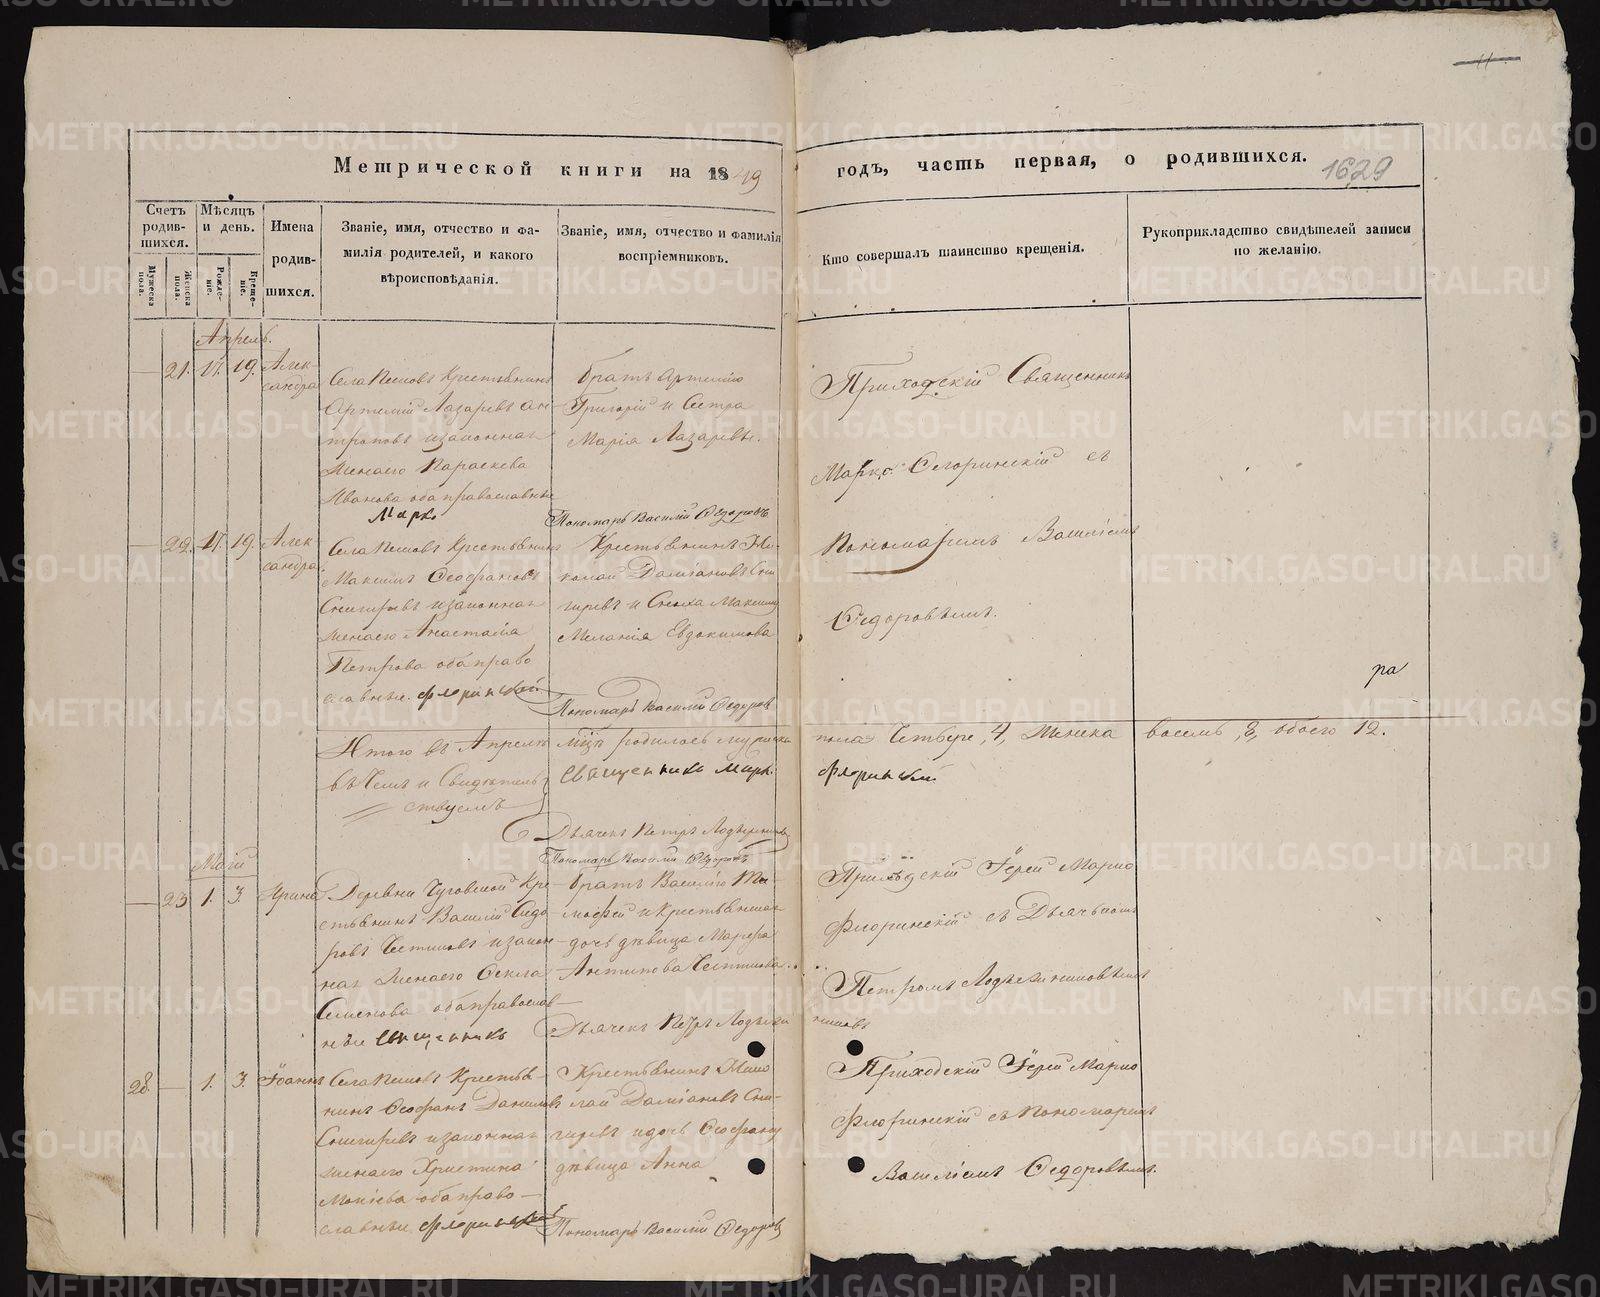 11
Метрической книги на 1849 годъ, часть первая, о родившихся.
1629
Счетъ родившихся.
Мужеска пола.
Женска пола.
Мѣсяцъ и день.
Рожденіе.
Крещеніе.
Имена родившихся.
Званіе, имя, отчество и фамилія родителей, и какого вѣроисповѣданія.
Званіе, имя, отчество и фамилія воспріемниковъ.
Кто совершалъ таинство крещенія.
Рукоприкладство свидѣтелей записи по желанію.
Апрель.
21. 17. 19. Александра
Села Крестьянинъ
Артемій Лазаревъ Ан-
троповъ и законная
жена его Параскева
Иванова оба православные
Марко
братъ Артемію
Григорій и Сестра
Марія Лазаревы.
Пономарь Василій Ѳедоровъ
Приходскій Священникъ
Марко Флоринскій съ
Пономаремъ Василіемъ
Ѳедоровымъ.
22. 17. 19. Александра
Села Крестьянинъ
Максимъ Ѳеофановъ
Снигиревъ и законная
жена его Анастасія
Петрова оба право
славные. Флоринскій
Крестьянинъ Ни-
колай Даміановъ Сни
гиревъ и Сноха Максиму
Меланія Евдокимова
Пономарь Василій Ѳедоровъ
ра
Итого въ Апрелѣ мцѣ родилось мужеска пола Четверо, 4, Женска восемь, 8, обоего 12.
въ чемъ и Свидѣтель
ствуемъ
Священникъ Марко Флоринскій
Дьячекъ Петръ
Пономарь Василій Ѳедоровъ
Маій
23 1. 3. Ирина
Деревни Кре-
стьянинъ Василій Сидо
ровъ и закон-
ная жена его Ѳекла
Семенова оба православ-
ные Священникъ
братъ Василію Ти-
моѳей и Крестьянская
дочь дѣвица Марѳа
Антипова
Дьячекъ Петръ
Приходскій Іерей Марко
Флоринскій съ Дьячкомъ
Петромъ
28. 1. 3. Іоаннъ
Села Крестья-
нинъ Ѳеофанъ Даниловъ
Снигиревъ и законная
жена его Христина
Мокіева оба право-
славные Флоринскій
Крестьянинъ Нико
лай Даміановъ Сни-
гиревъ и дочь Ѳеофану
дѣвица Анна
Пономарь Василій Ѳедоровъ
Приходскій Іерей Марко
Флоринскій съ Пономаремъ
Василіемъ Ѳедоровымъ.
METRIKI.GASO-URAL.RU